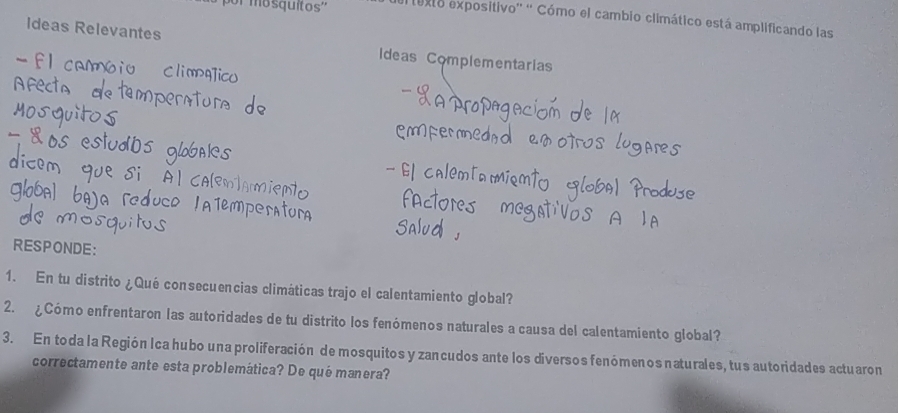 por mosquitos"
texto expositivo" " Cómo el cambio climático está amplificando las
Ideas Relevantes
- El cambio climatico
Afecta de temperatura de
Mosquitos
- Los estudios globales
dicem que si Al calentamiento
global baja reduco la Temperatura
de mosquitos
Ideas Complementarias
- La propagación de la
emfermedad em otros lugares
- El calentamiento global Produse
factores megativos A la
Salud.
RESPONDE:
1. En tu distrito ¿Qué consecuencias climáticas trajo el calentamiento global?
2. ¿Cómo enfrentaron las autoridades de tu distrito los fenómenos naturales a causa del calentamiento global?
3. En toda la Región Ica hubo una proliferación de mosquitos y zancudos ante los diversos fenómenos naturales, tus autoridades actuaron
correctamente ante esta problemática? De qué manera?